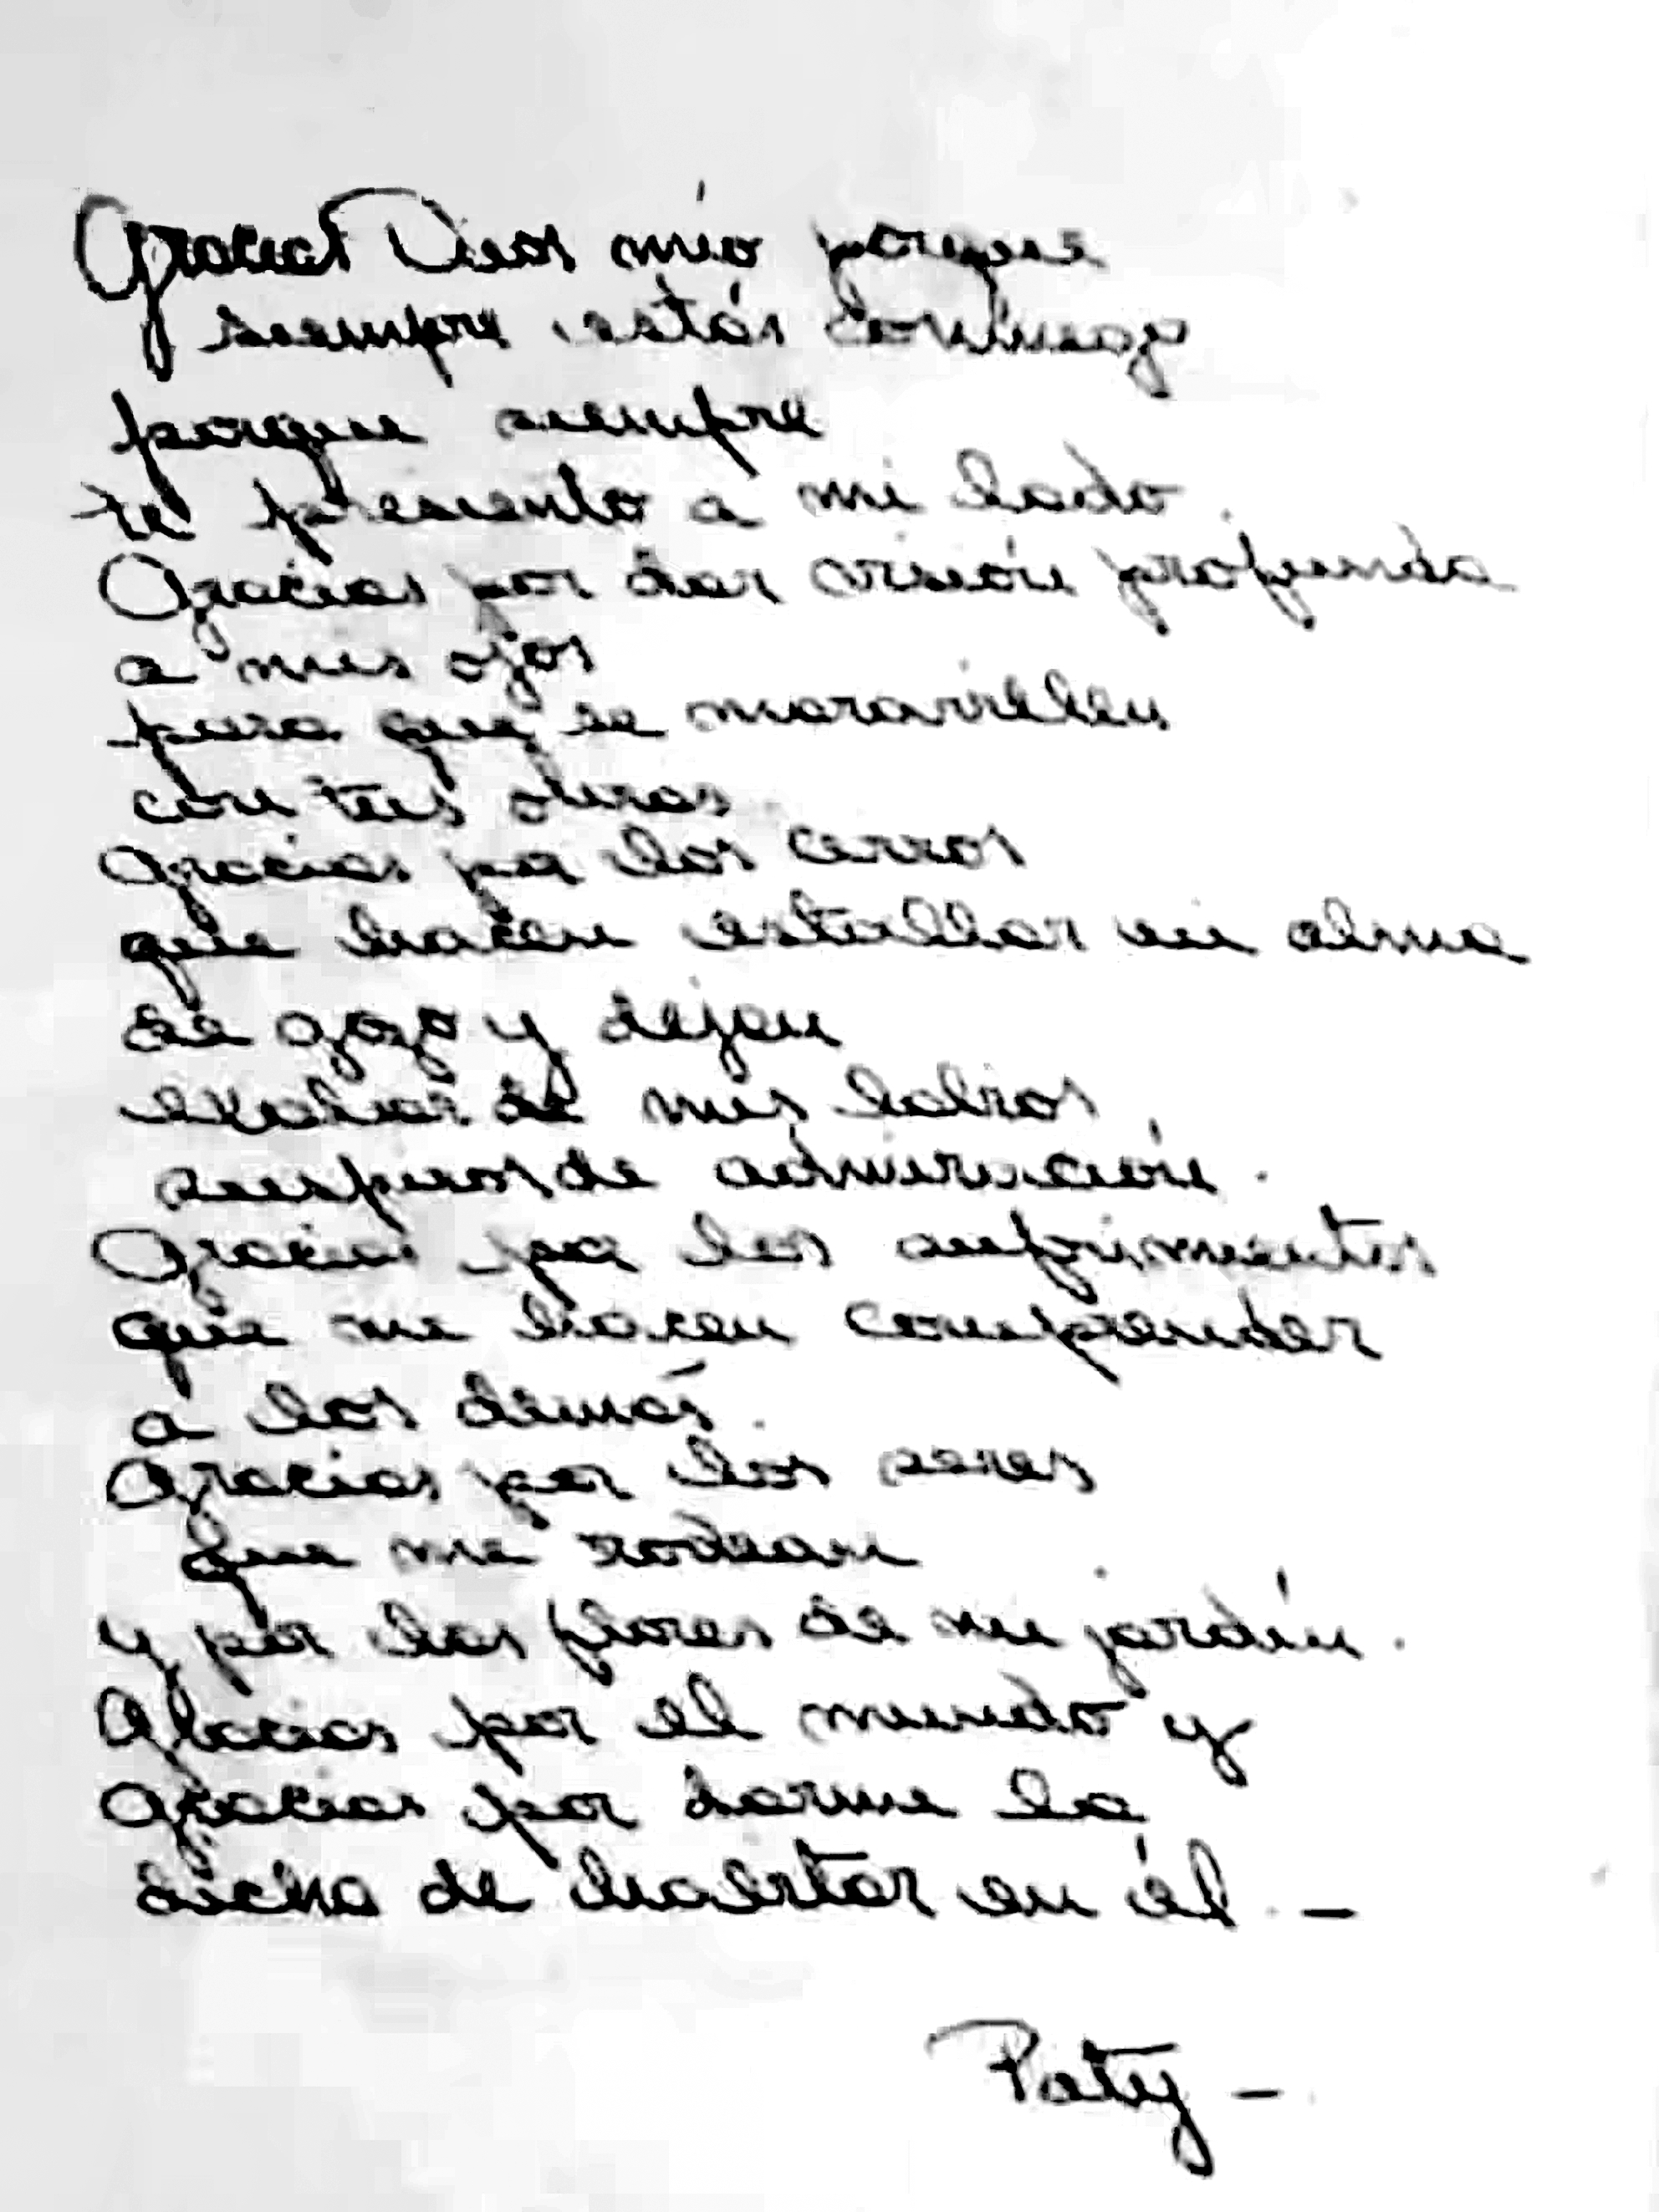 Gracias Dios mío porque
siempre estás conmigo
porque siempre
te presiento a mi lado.
Gracias por dar visión profunda
a mis ojos
para que se maravillen
con tus obras.
Gracias por los cerros
que hacen estallar mi alma
de gozo y dejan
exhalar de mis labios
suspiros de admiración.
Gracias por los sufrimientos
que me hacen comprender
a los demás.
Gracias por los seres
que me rodean
y por las flores de mi jardín.
Gracias por el mundo y
gracias por darme la
dicha de habitar en él. -
Paty -